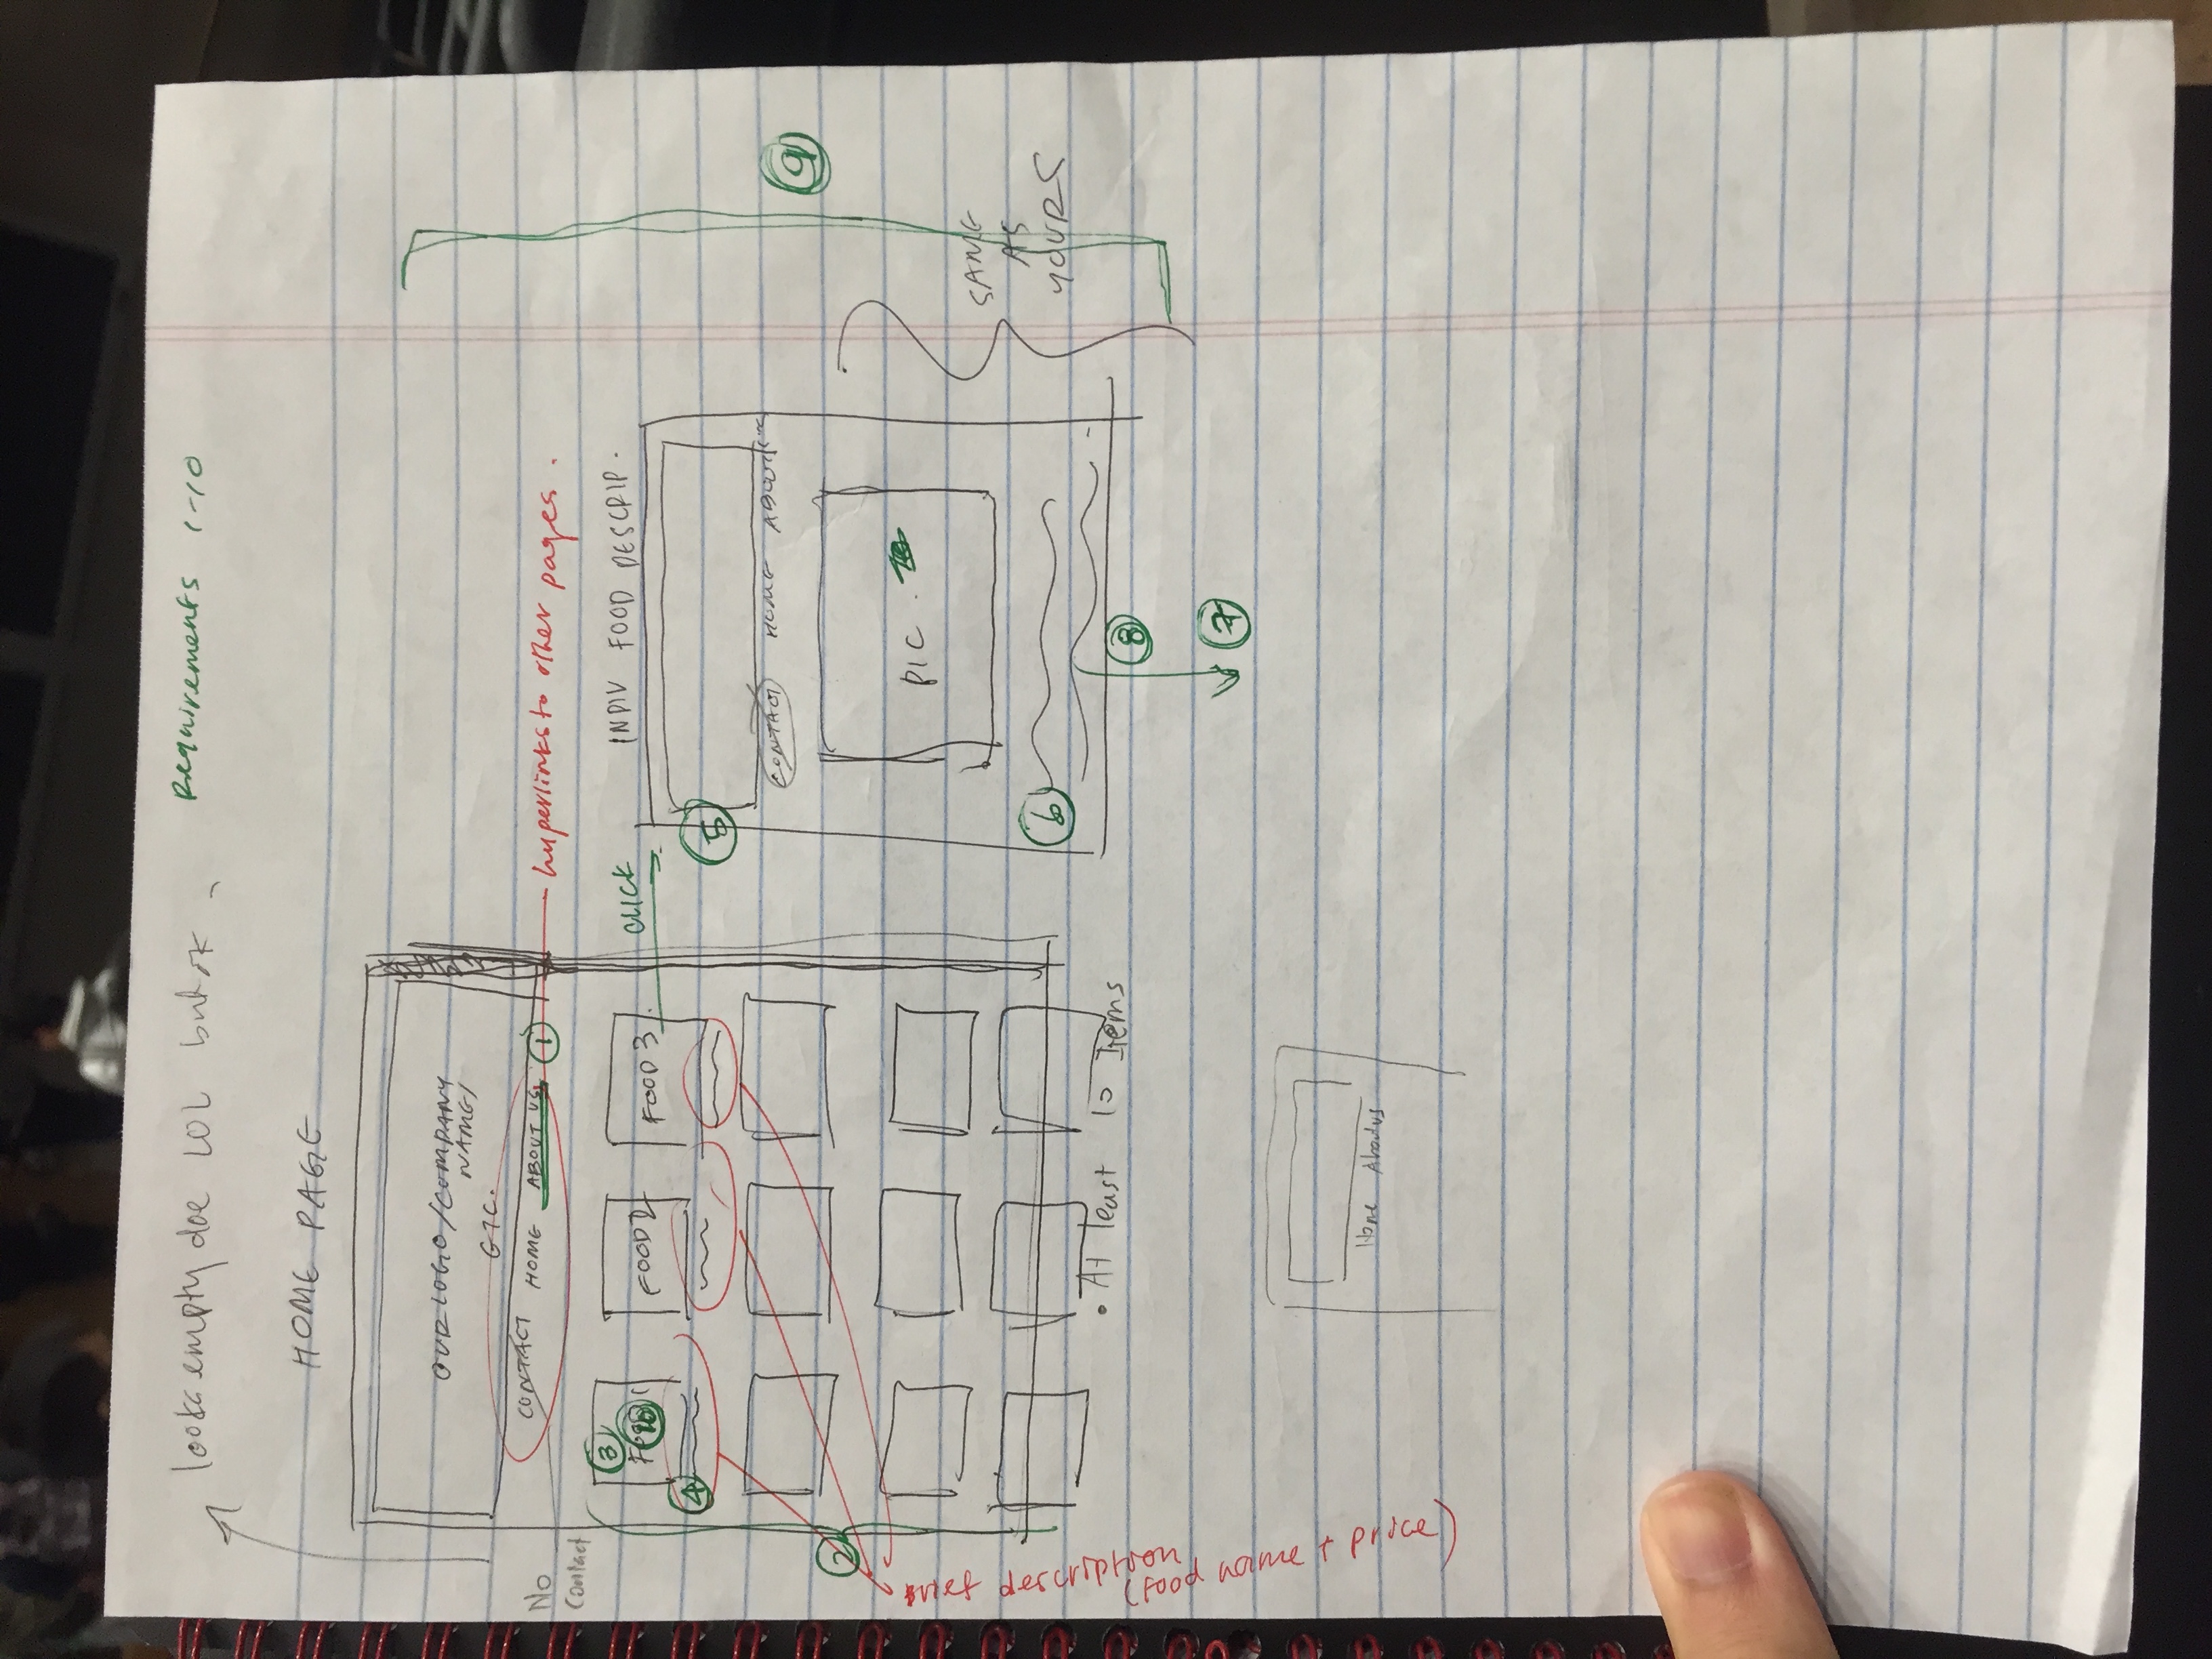 looks empty doe LOL but ok
Requirements 1-10
HOME PAGE
OUR LOGO/COMPANY
NAME/
ETC.
CONTACT HOME ABOUT US 1
hyperlinks to other pages.
No
Contact
3
FOOD 1
10
FOOD 2
FOOD 3
4
CLICK
2
brief description
(food name + price)
• At least 10 Items
INDIV FOOD DESCRIP.
5
CONTACT HOME ABOUT
PIC.
6
8
7
9
SAME
AS
YOURS
Home About us